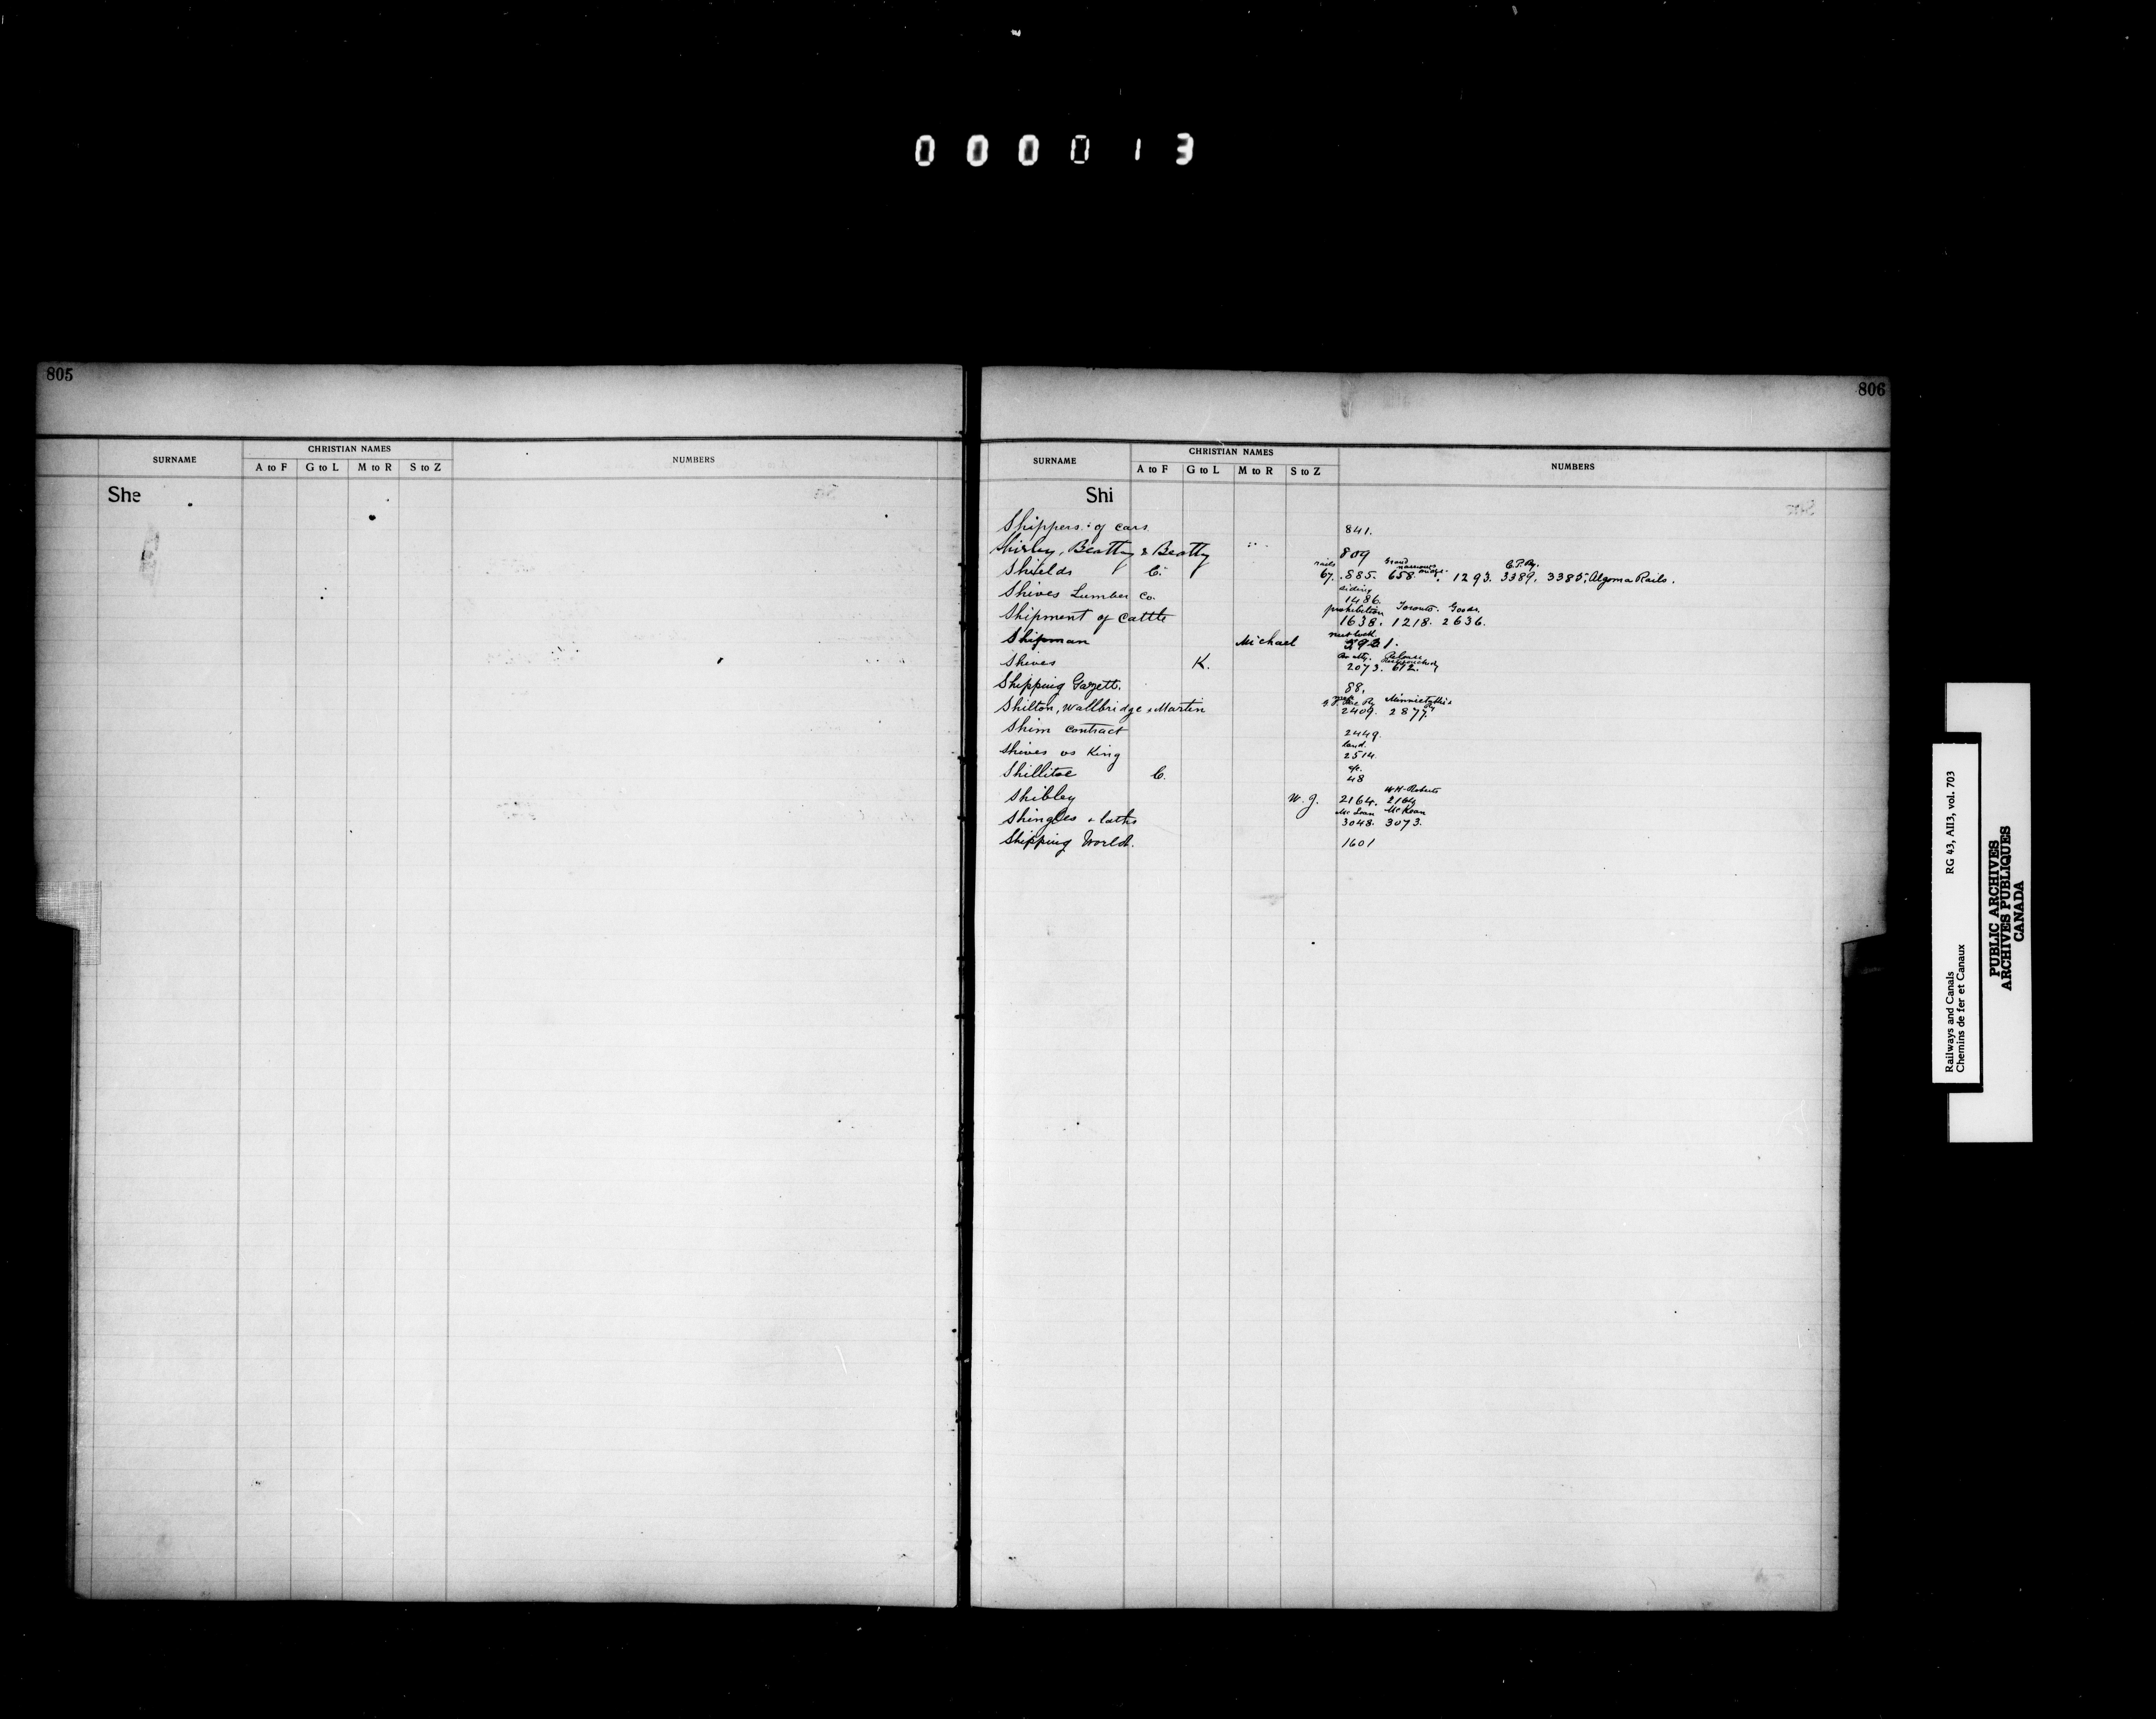 000013
805
SURNAME CHRISTIAN NAMES NUMBERS
A to F G to L M to R S to Z
She
806
SURNAME CHRISTIAN NAMES NUMBERS
A to F G to L M to R S to Z
Shi
Shippers of cars 841.
Shirley, Beatty & Beatty 809
rails C.P.Ry.
Shields C. 67. 885. 658. 1293. 3389. 3385, Algoma Rails.
siding
Shives Lumber Co. 1486.
prohibition Toronto. Goods.
Shipment of Cattle 1638. 1218. 2636.
Shipman Michael
Shives K. 2073. 612.
Shipping Gazett. 88.
Shilton, Wallbridge & Martin 2409. 2877.
Shim Contract 2449.
land.
Shives vs King 2514.
Shillitoe C. 48
W.H. Roberts
Shibley W. J. 2164. 2164
McLean McKean
Shingles & laths 3048. 3073.
Shipping World. 1601
Railways and Canals RG 43, AII3, vol. 703
Chemins de fer et Canaux
PUBLIC ARCHIVES
ARCHIVES PUBLIQUES
CANADA